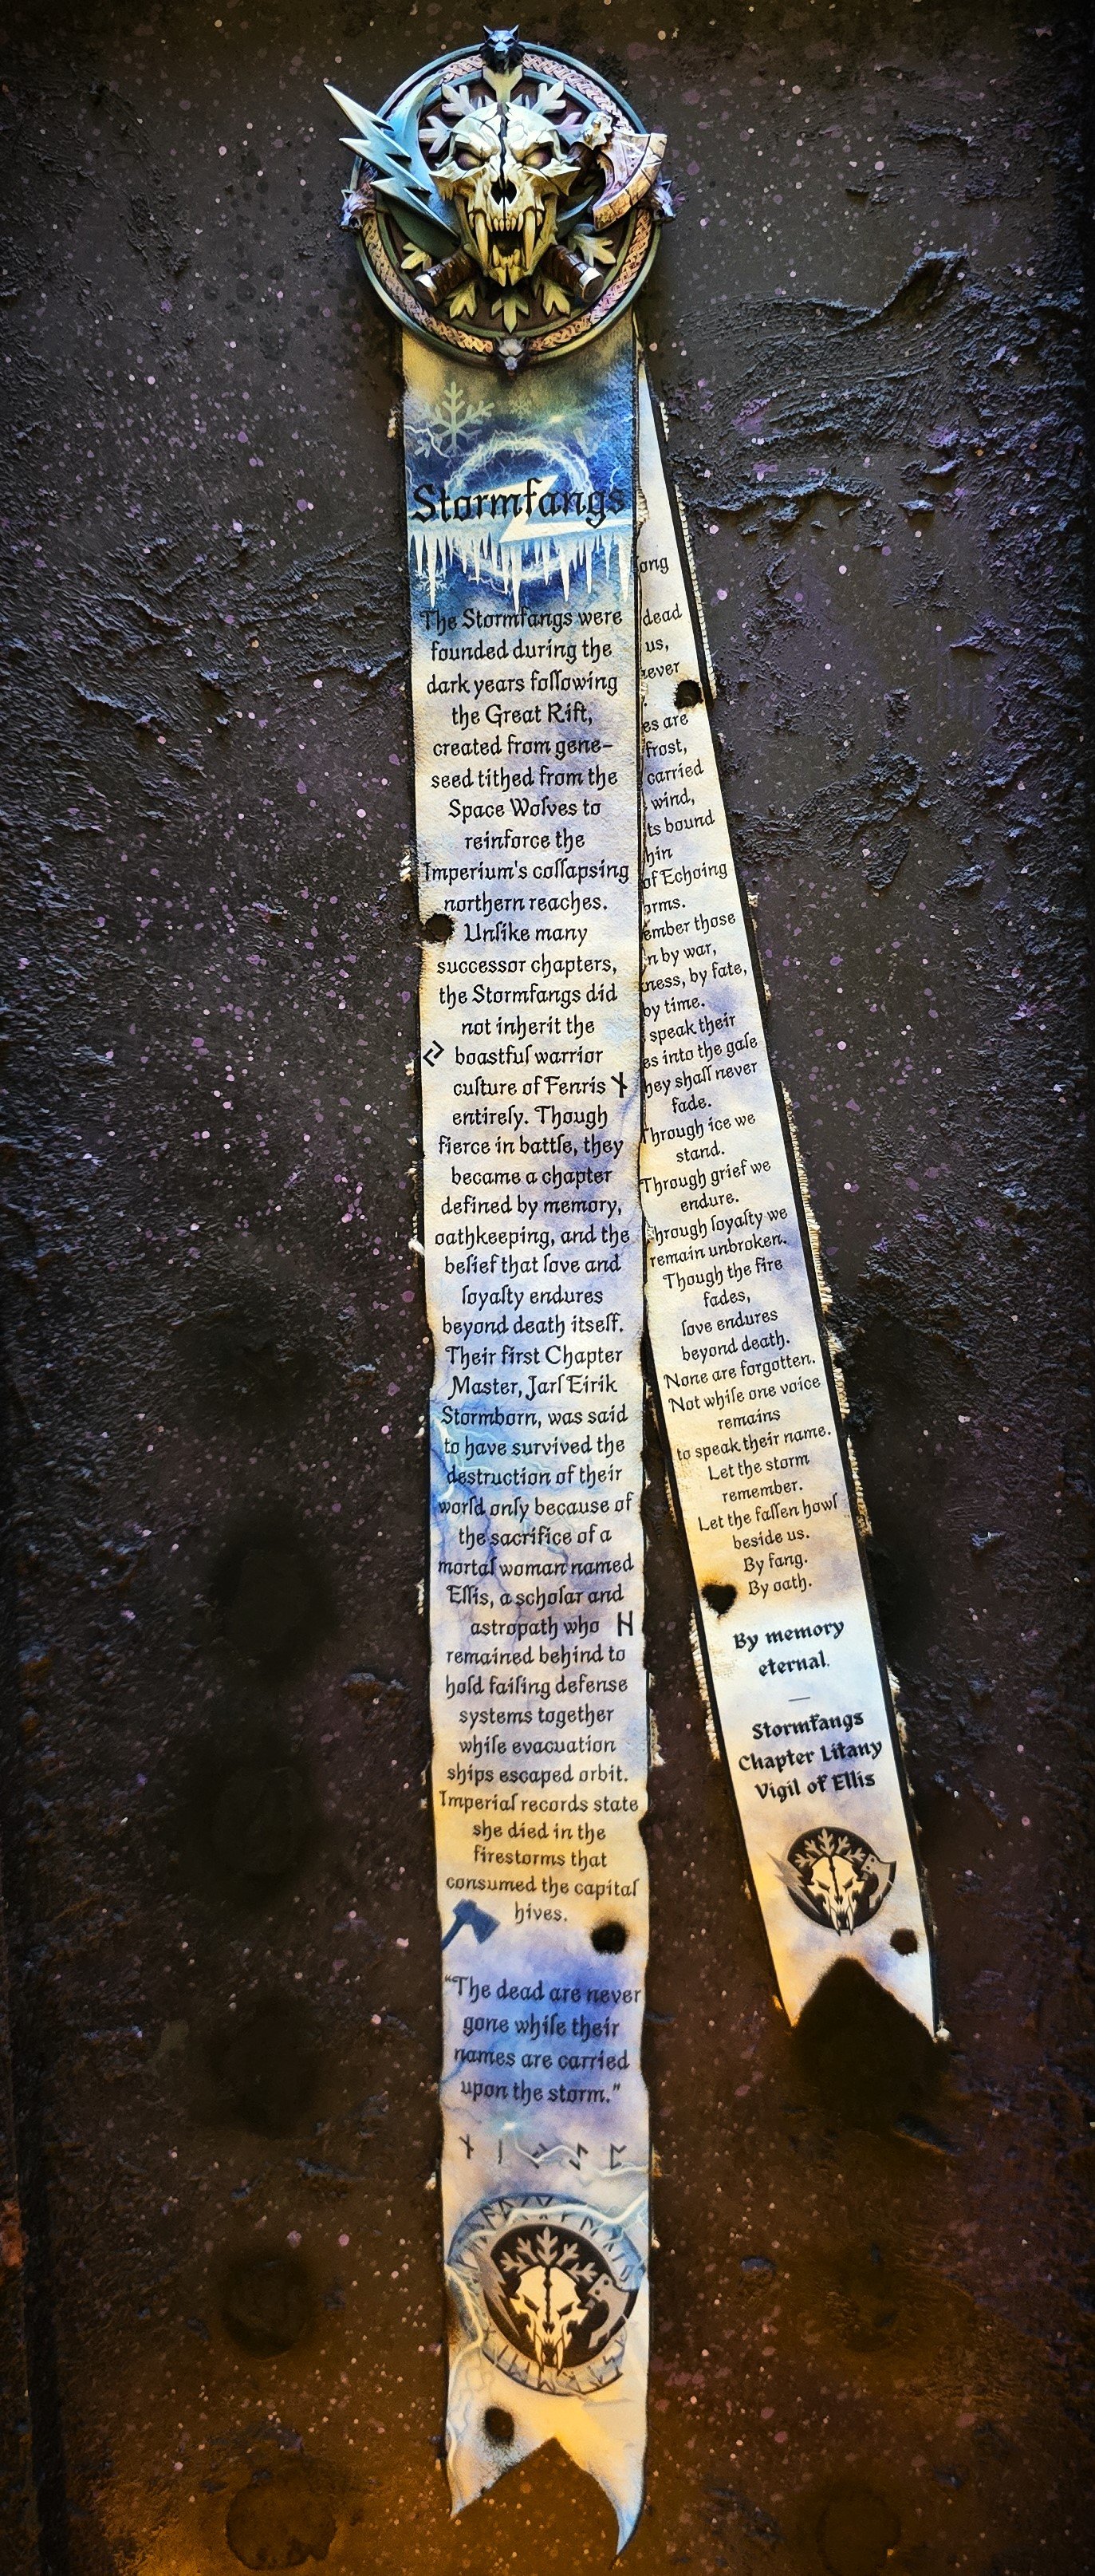 Stormfangs
The Stormfangs were
founded during the
dark years following
the Great Rift,
created from gene-
seed tithed from the
Space Wolves to
reinforce the
Imperium's collapsing
northern reaches.
Unlike many
successor chapters,
the Stormfangs did
not inherit the
boastful warrior
culture of Fenris
entirely. Though
fierce in battle, they
became a chapter
defined by memory,
oathkeeping, and the
belief that love and
loyalty endures
beyond death itself.
Their first Chapter
Master, Jarl Eirik
Stormborn, was said
to have survived the
destruction of their
world only because of
the sacrifice of a
mortal woman named
Ellis, a scholar and
astropath who
remained behind to
hold failing defense
systems together
while evacuation
ships escaped orbit.
Imperial records state
she died in the
firestorms that
consumed the capital
hives.
“The dead are never
gone while their
names are carried
upon the storm.”
ong
dead
us,
ever
es are
frost,
carried
wind,
ts bound
hin
of Echoing
orms.
ember those
n by war,
ness, by fate,
by time.
speak their
es into the gale
hey shall never
fade.
Through ice we
stand.
Through grief we
endure.
hrough loyalty we
remain unbroken.
Though the fire
fades,
love endures
beyond death.
None are forgotten.
Not while one voice
remains
to speak their name.
Let the storm
remember.
Let the fallen howl
beside us.
By fang.
By oath.
By memory
eternal.
—
Stormfangs
Chapter Litany
Vigil of Ellis